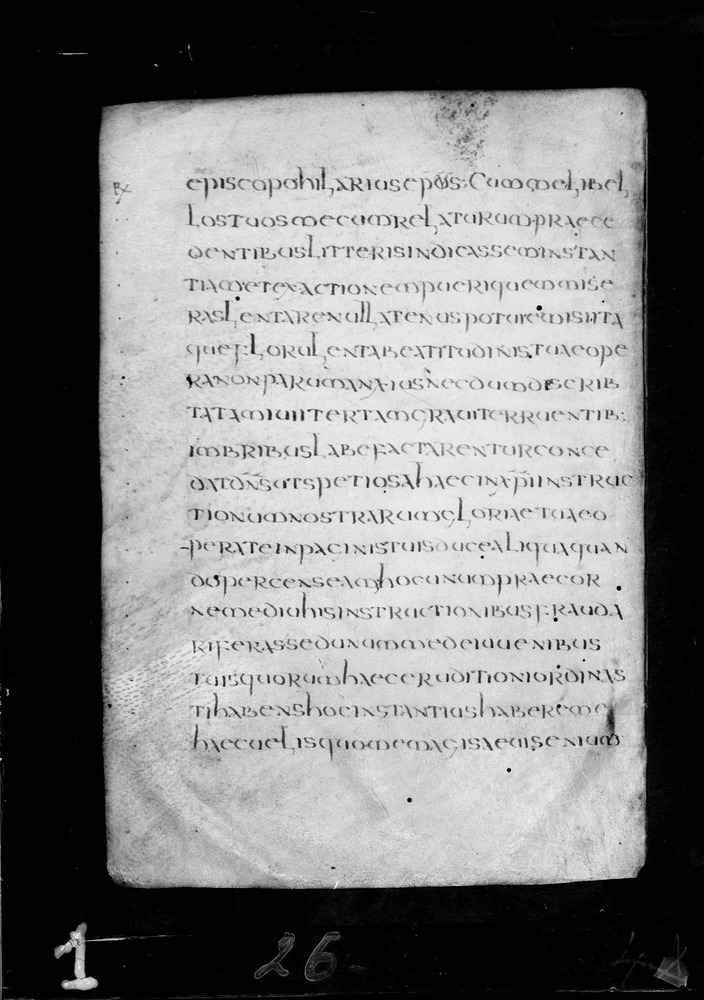 episcopo hilarius epos· Cum me libel
los tuos mecum relaturum prae
dentibus litteris indicassem instan
tiam et exactionem pueri quem mise
ras lentare nullatenus potui emisi ita
que flor lenta beatitudinis tuae ope
ra non parum anxius nec dum discrib
tatam iuiter tam graui terruentib:
imbribus labefactarentur conce
dat dns ut spetiosa haec in xpi instruc
tionum nostrarum gloriae tuae o
perate in pacinis tuis duce aliqua quan
do percenseam hoc unum praecor
ne me diu his instructionibus frauda
ri feras sed unum mede iuuenibus
tuis quorum haec eruditioni ordinas
ti habens hoc instantius haberem e
haec uelis quo me magis aeui senium
1
26